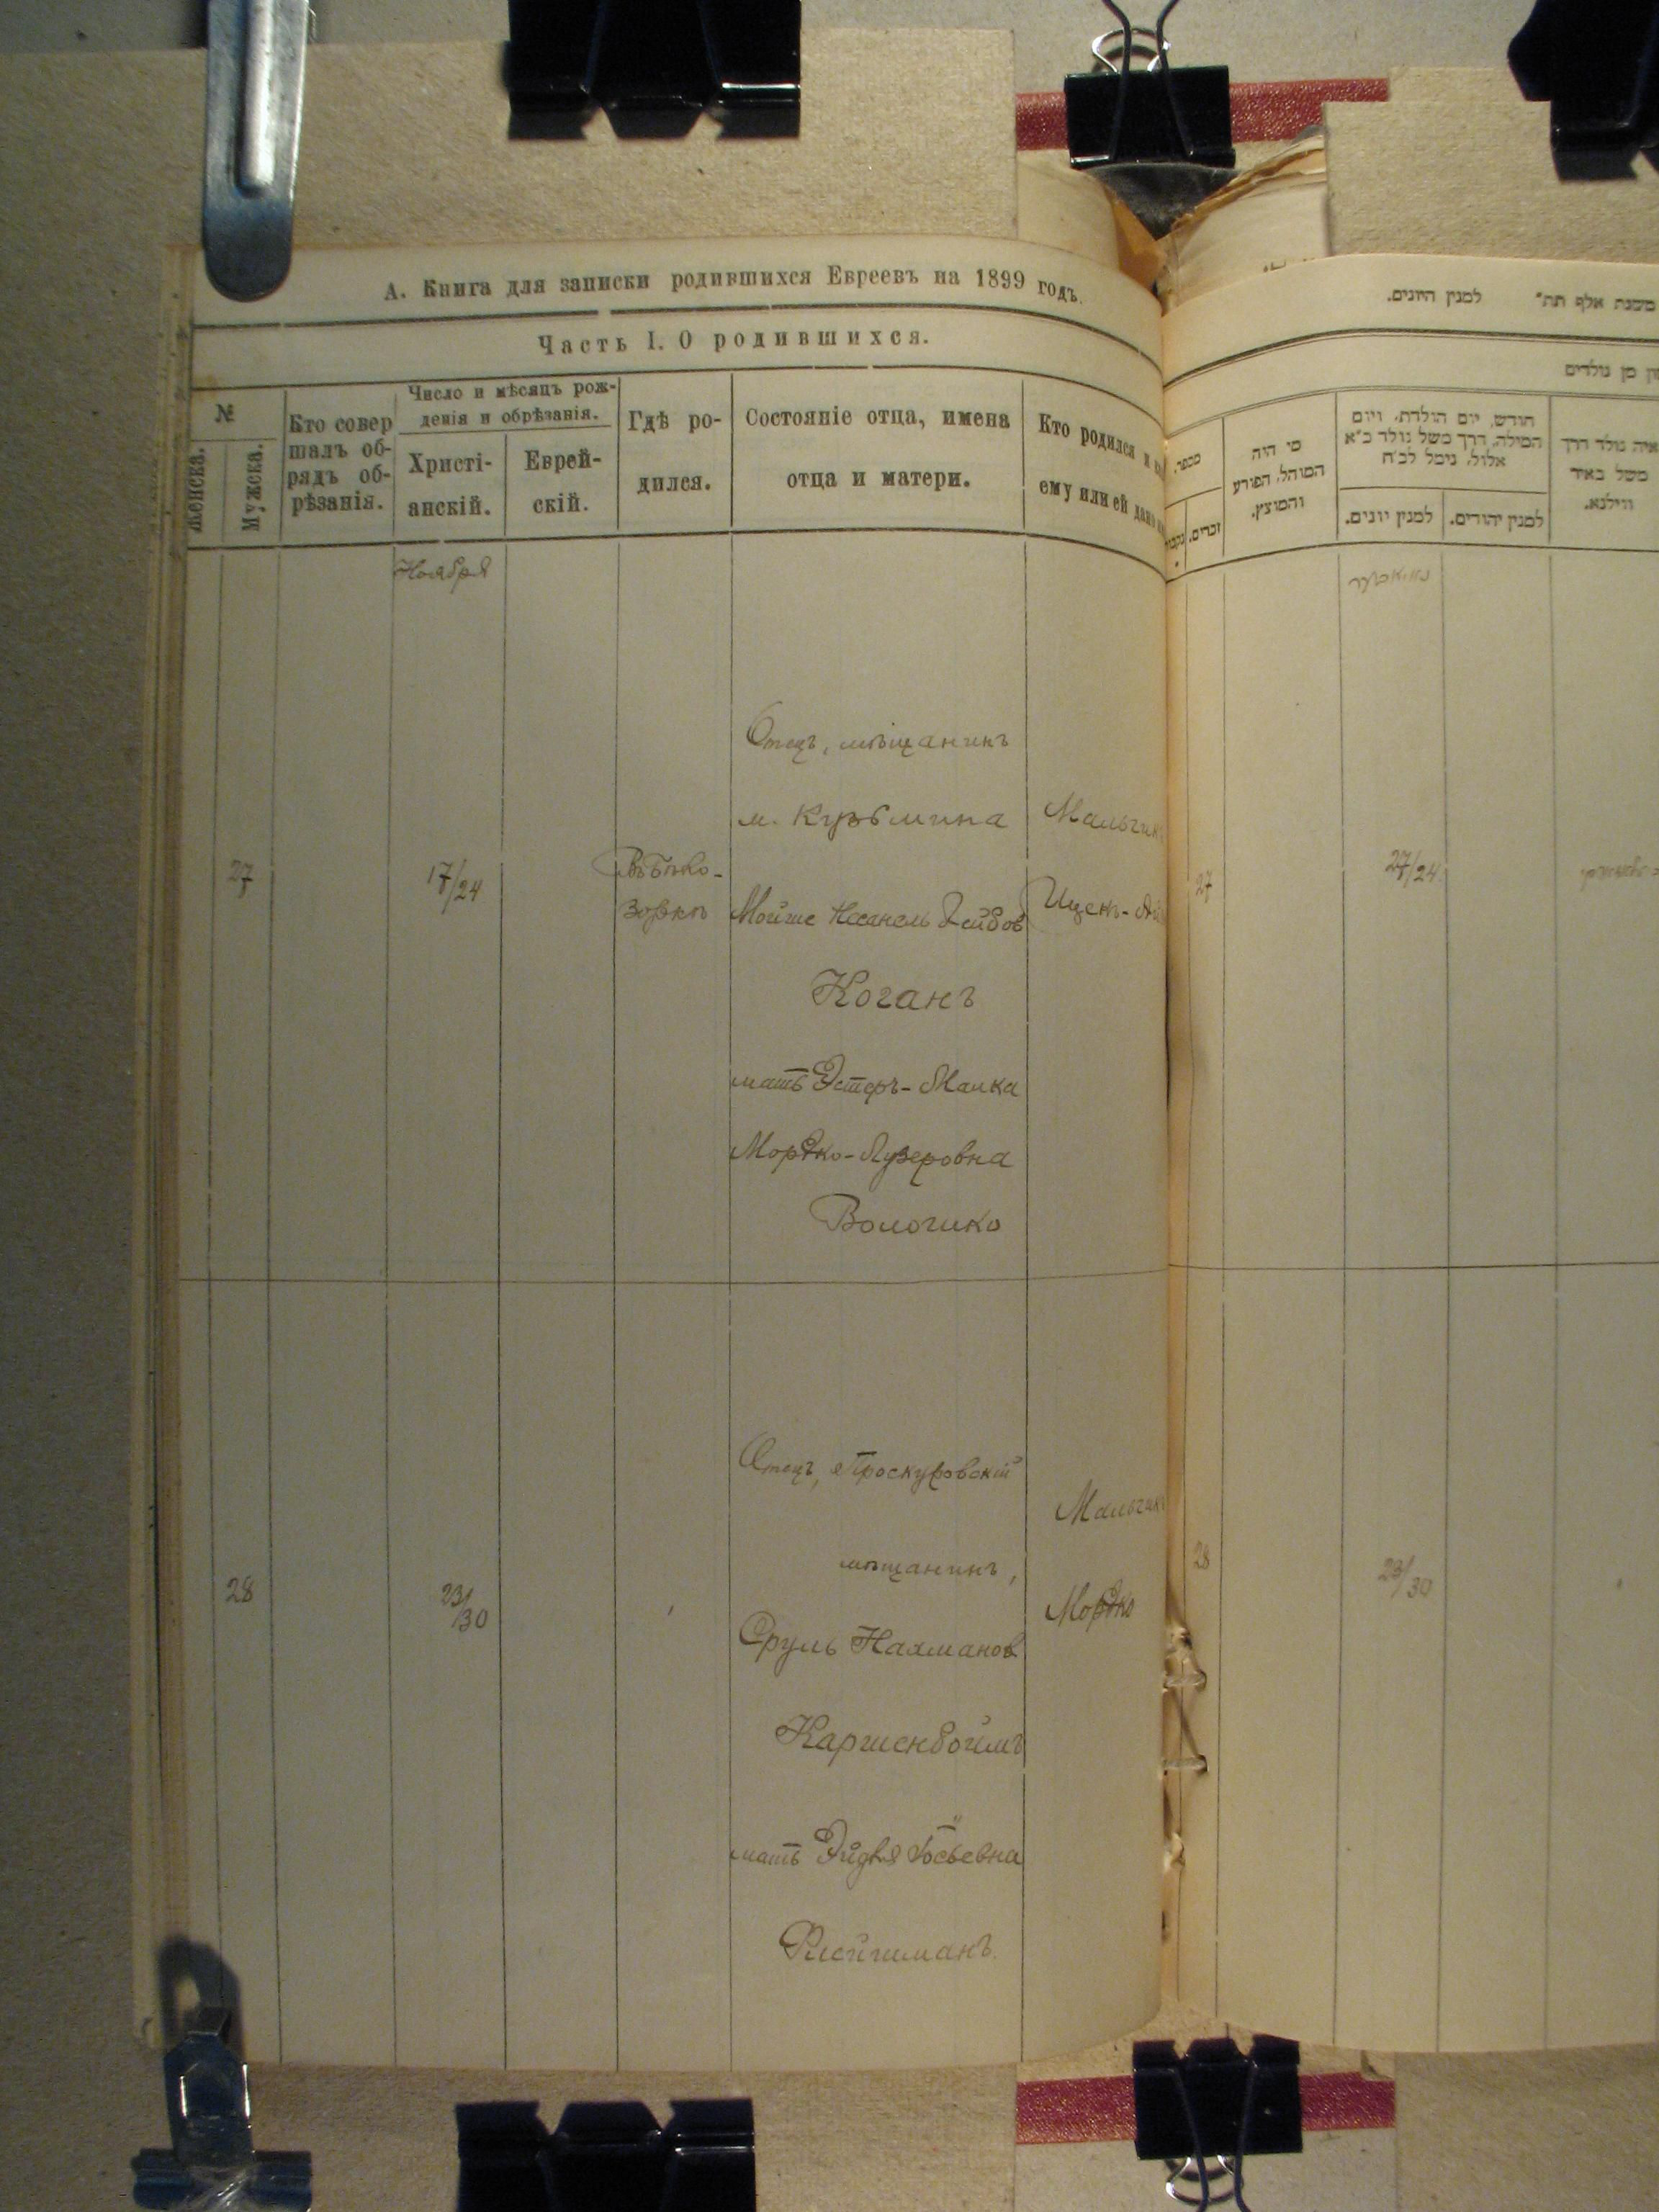 А. Книга для записки родившихся Евреевъ на 1899 годъ.
Часть I. О родившихся.
№
Женска.
Мужеска.
Кто совер
шалъ об-
рядъ об-
рѣзанія.
Число и мѣсяцъ рож-
денія и обрѣзанія.
Христі-
анскій.
Еврей-
скій.
Гдѣ ро-
дился.
Состояніе отца, имена
отца и матери.
Кто родился и
ему или ей дано
Ноября
27
17/24
Отецъ, мѣщанинъ
м. Кузьмина
Мойше
Коганъ
мать Эстеръ-Малка
Мордко-Лузеровна
Мальчикъ
Ицекъ-
28
23/30
Отецъ, Проскуровскій
мѣщанинъ,
Сруль Нахманов
Каршенбоймъ
мать Іосьевна
Флейшманъ.
Мальчикъ
Мордко
למנין היונים.
משנת אלף תת״
מן נולדים
מספר.
זכרים.
מי היה
המוהל, הפורע
והמוצץ.
חודש, יום הולדת, ויום
המילה, דרך משל נולד כ״א
אלול, נימל לכ״ח
למנין יונים.
למנין יהודים.
איה נולד דרך
משל באיר
ווילנא.
27
28
23/30